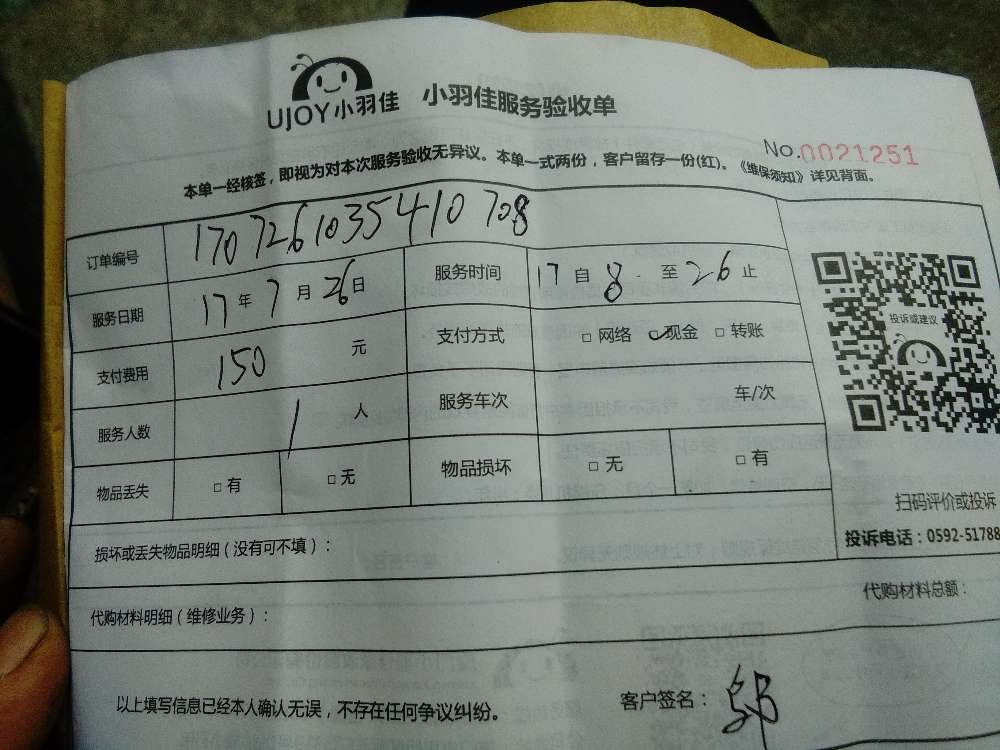 UJOY小羽佳 小羽佳服务验收单
No.0021251
本单一经核签，即视为对本次服务验收无异议。本单一式两份，客户留存一份(红)。《维保须知》详见背面。
订单编号 1707261035410708
服务日期 17年7月26日 服务时间 17自8·至26止
支付费用 150元 支付方式 □网络 ✓现金 □转账
投诉或建议
服务人数 1人 服务车次 车/次
物品丢失 □有 □无 物品损坏 □无 □有
扫码评价或投诉
损坏或丢失物品明细（没有可不填）： 投诉电话：0592-51788
代购材料明细（维修业务）： 代购材料总额：
以上填写信息已经本人确认无误，不存在任何争议纠纷。 客户签名：